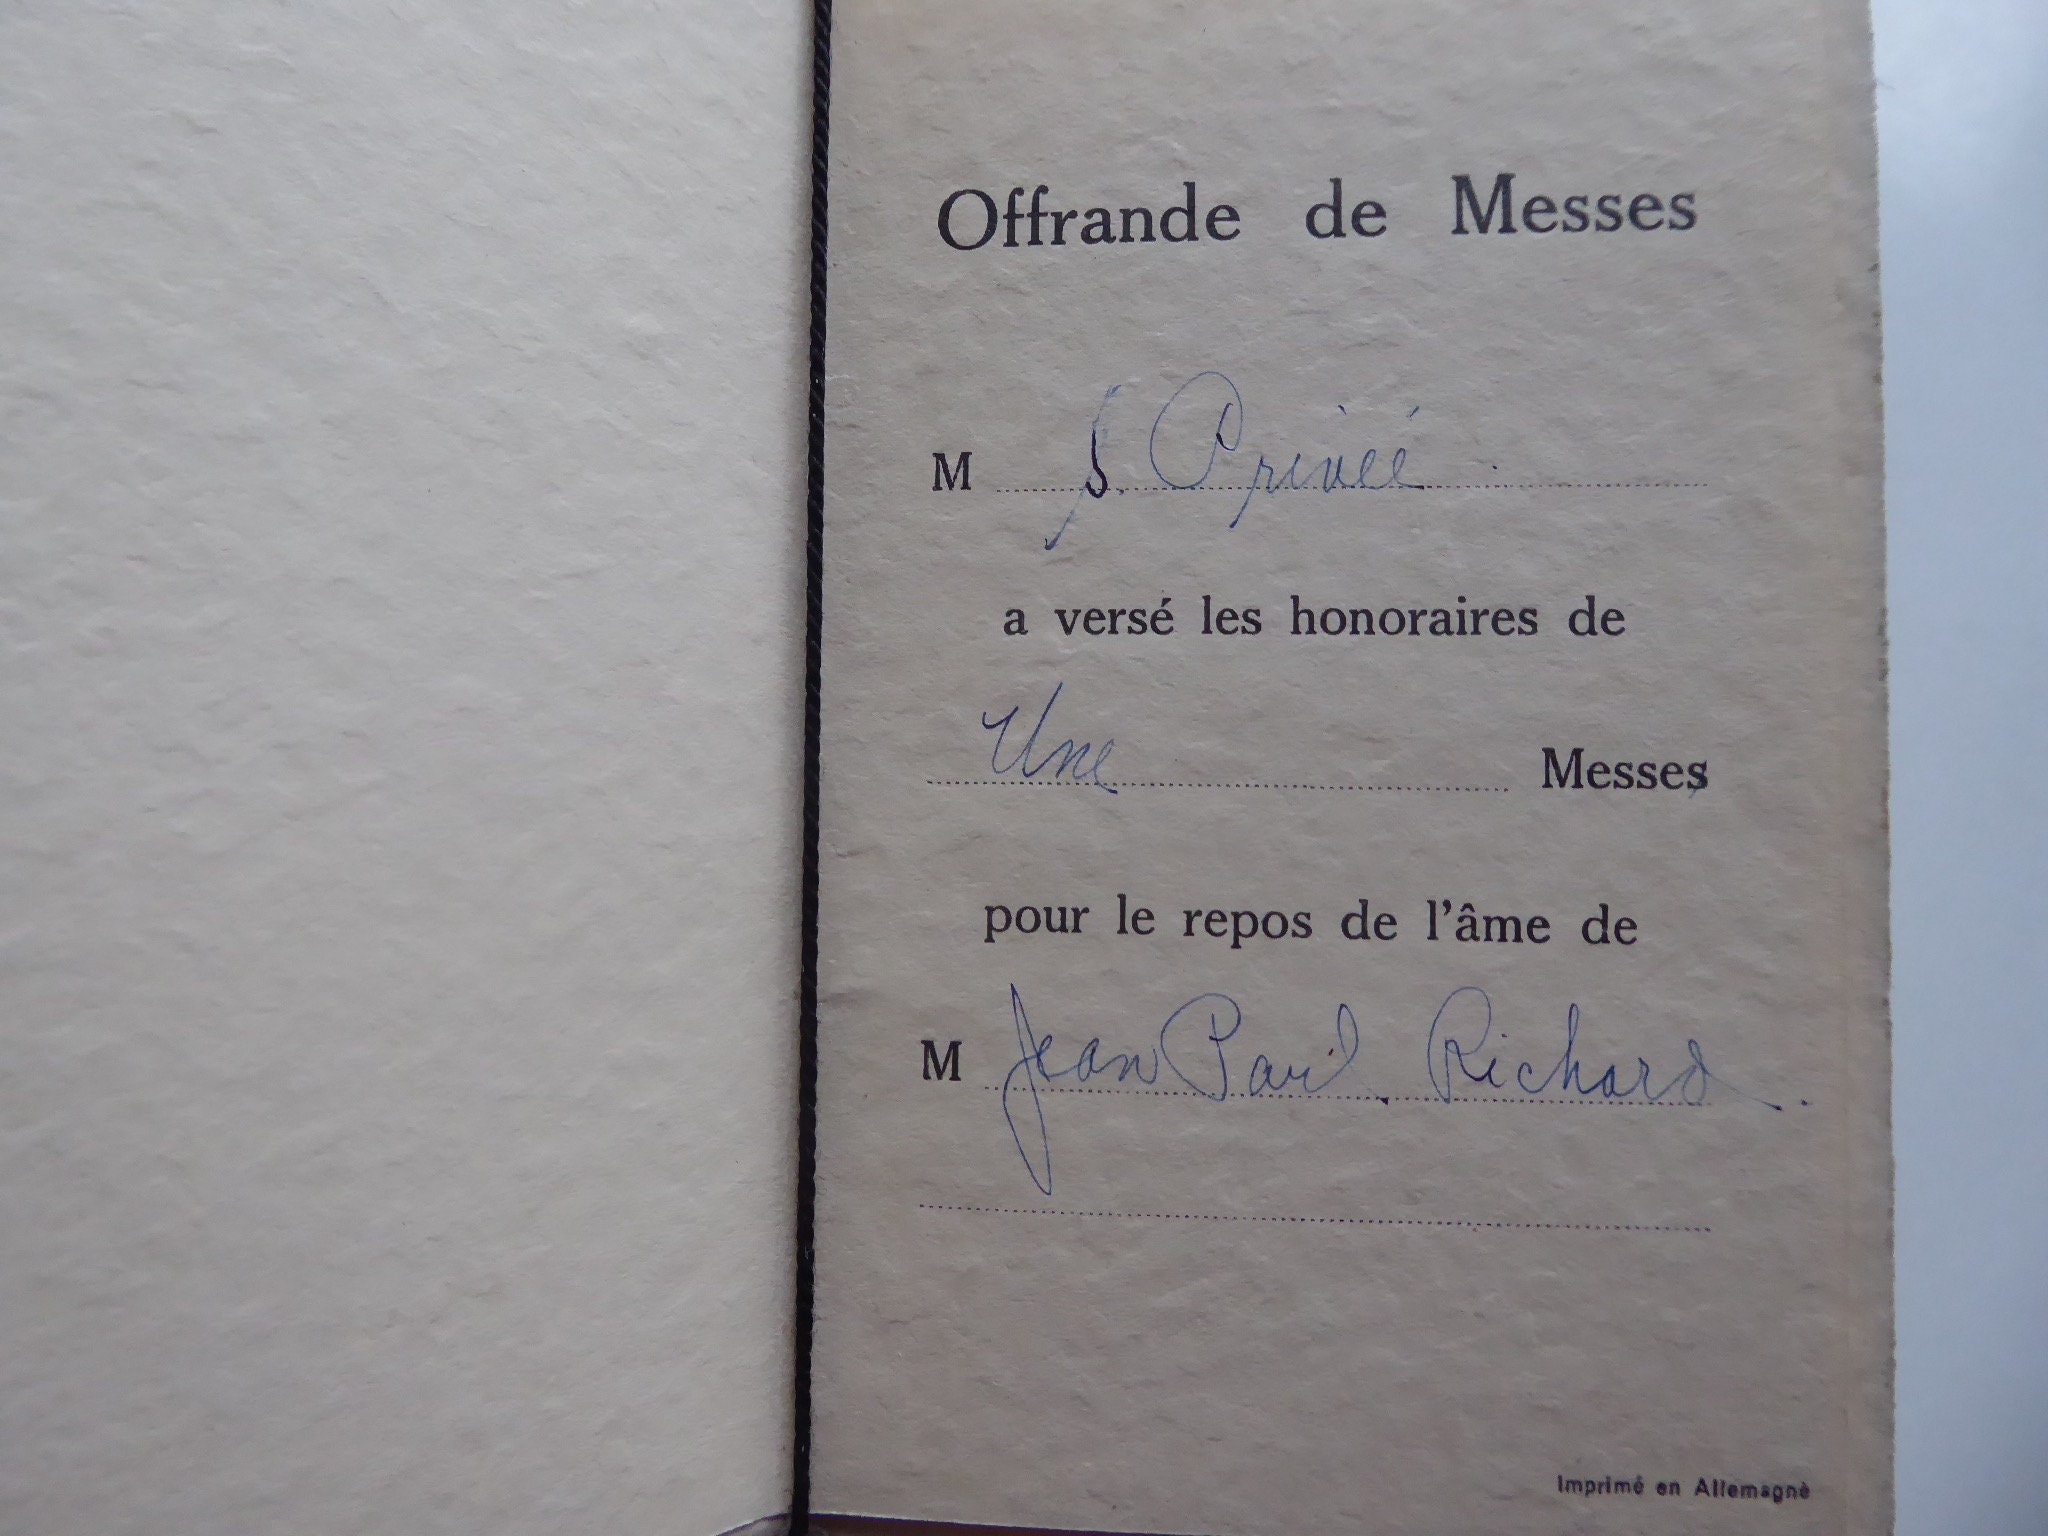 Offrande de Messes
M S. Privée
a versé les honoraires de
Une Messes
pour le repos de l'âme de
M Jean Paul Richard.
Imprimé en Allemagne